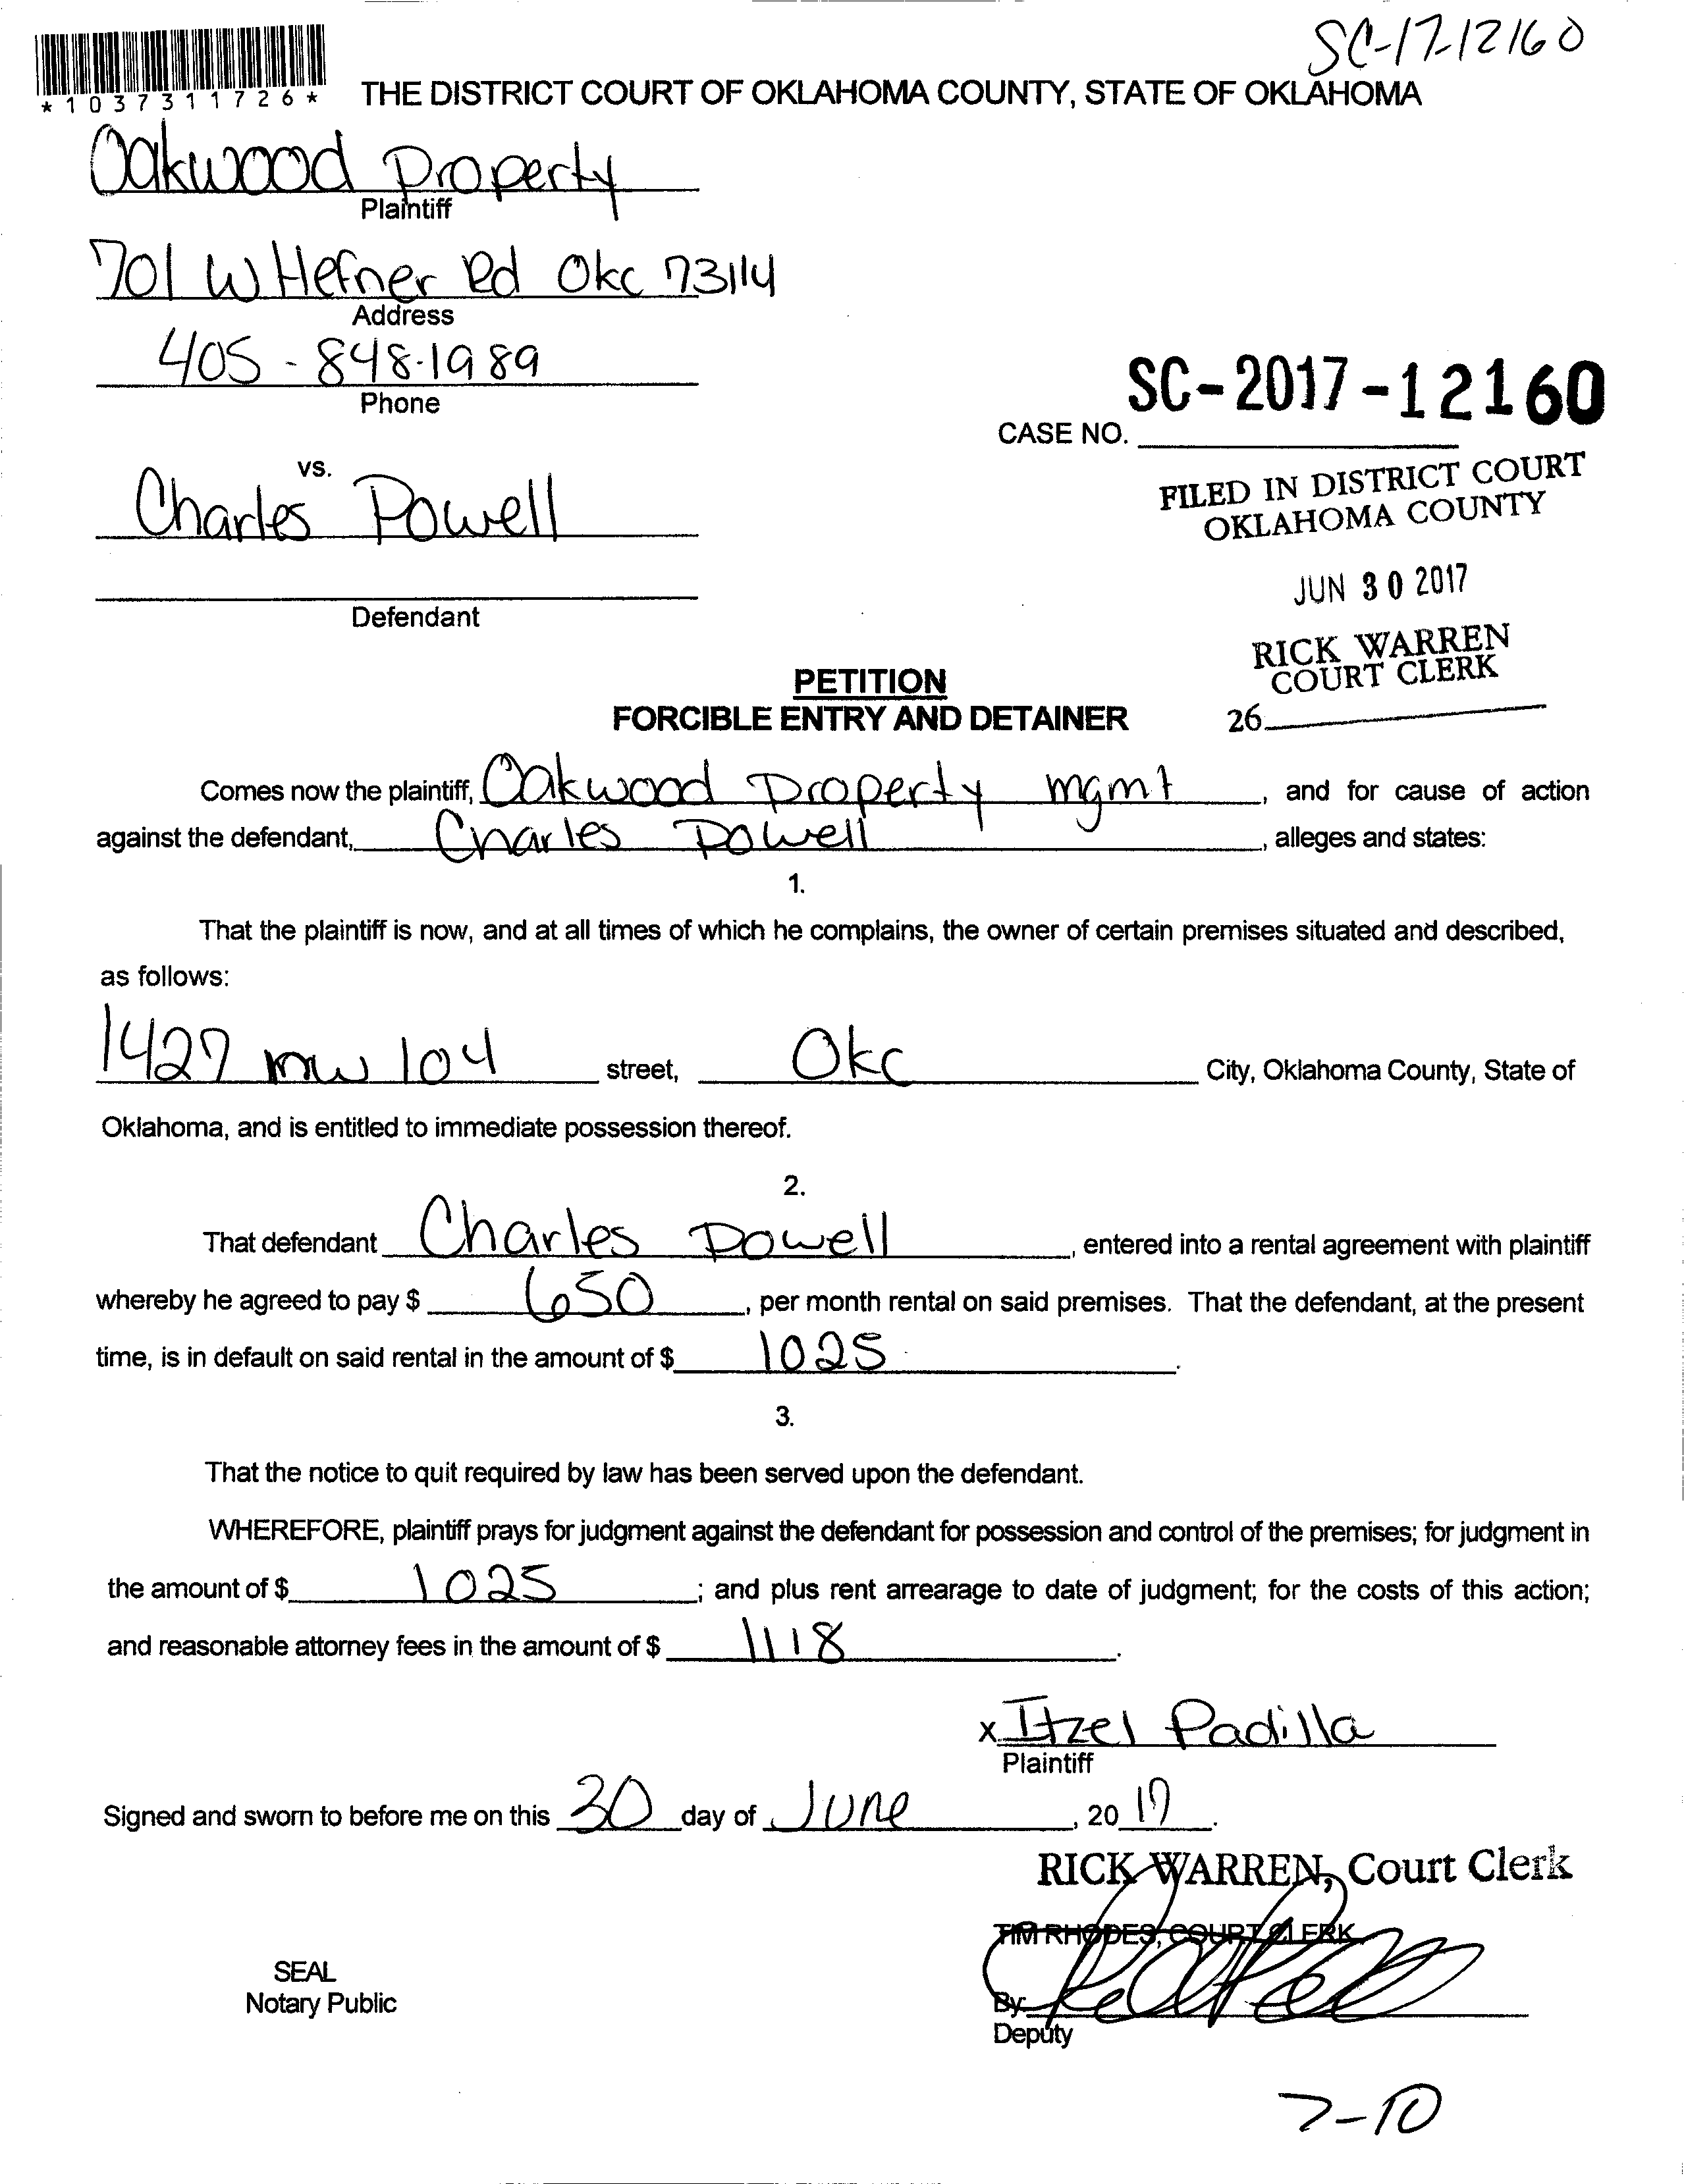 SC-17-12160
*1037311726*
THE DISTRICT COURT OF OKLAHOMA COUNTY, STATE OF OKLAHOMA
Oakwood Property
Plaintiff
701 W Hefner Rd Okc 73114
Address
405-848-1989
Phone
SC-2017-12160
CASE NO.
vs.
Charles Powell
FILED IN DISTRICT COURT
OKLAHOMA COUNTY
JUN 30 2017
Defendant
RICK WARREN
COURT CLERK
26
PETITION
FORCIBLE ENTRY AND DETAINER
Comes now the plaintiff, Oakwood Property mgmt, and for cause of action
against the defendant, Charles Powell, alleges and states:
1.
That the plaintiff is now, and at all times of which he complains, the owner of certain premises situated and described,
as follows:
1427 nw 104 street, Okc City, Oklahoma County, State of
Oklahoma, and is entitled to immediate possession thereof.
2.
That defendant Charles Powell, entered into a rental agreement with plaintiff
whereby he agreed to pay $ 650, per month rental on said premises. That the defendant, at the present
time, is in default on said rental in the amount of $ 1025.
3.
That the notice to quit required by law has been served upon the defendant.
WHEREFORE, plaintiff prays for judgment against the defendant for possession and control of the premises; for judgment in
the amount of $ 1025; and plus rent arrearage to date of judgment; for the costs of this action;
and reasonable attorney fees in the amount of $ 1118.
x Itzel Padilla
Plaintiff
Signed and sworn to before me on this 30 day of June, 2017.
RICK WARREN, Court Clerk
TIM RHODES, COURT CLERK
SEAL
Notary Public
By:
Deputy
7-10